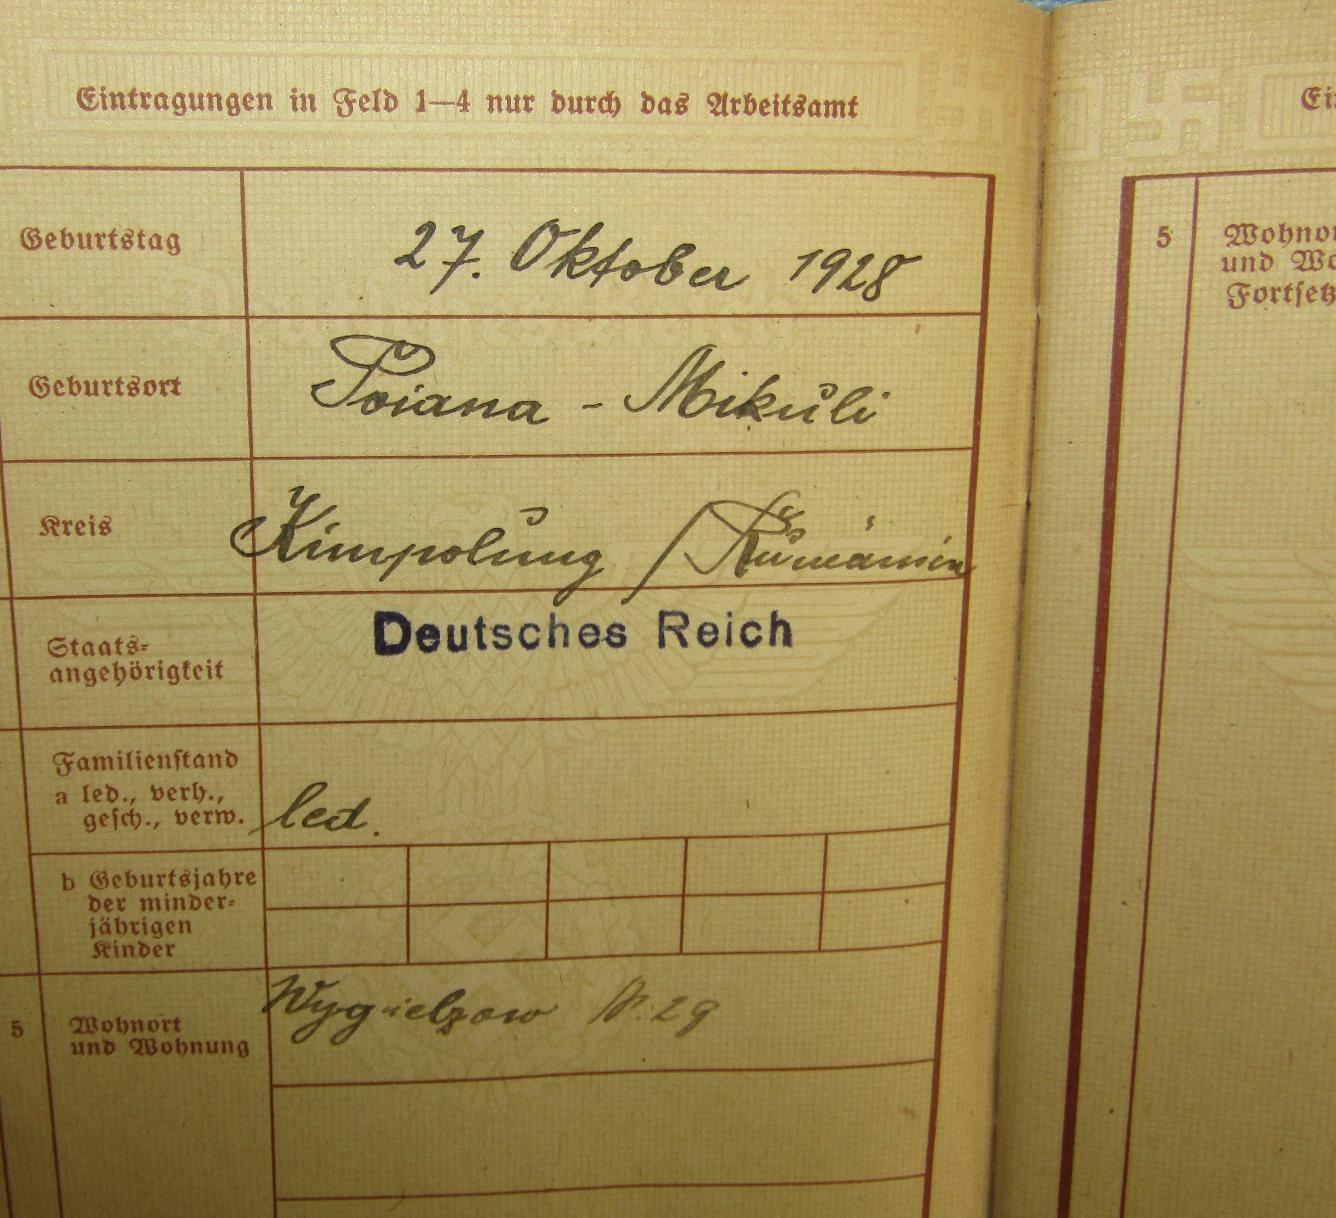 Eintragungen in Feld 1—4 nur durch das Arbeitsamt
Geburtstag
27. Oktober 1928
Geburtsort
Poiana - Mikuli
Kreis
Kimpolung / Rumänien
Staats-
angehörigkeit
Deutsches Reich
Familienstand
a led., verh.,
gesch., verw.
led.
b Geburtsjahre
der minder-
jährigen
Kinder
5 Wohnort
und Wohnung
Wygielzow N. 29
5